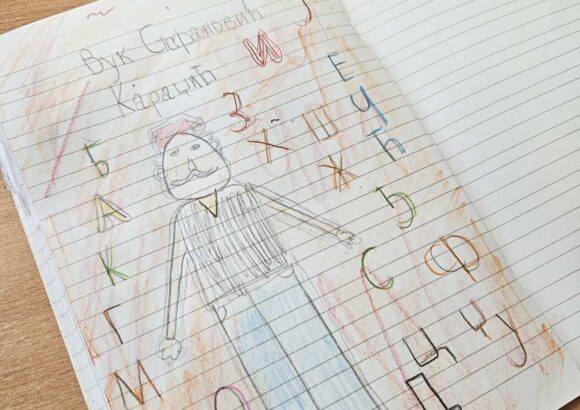 Вук Стефановић
Караџић
И
З
Х
Ш
Ж
Е
Ч
Ћ
Ђ
С
Ф
Ц
У
Б
А
К
Г
М